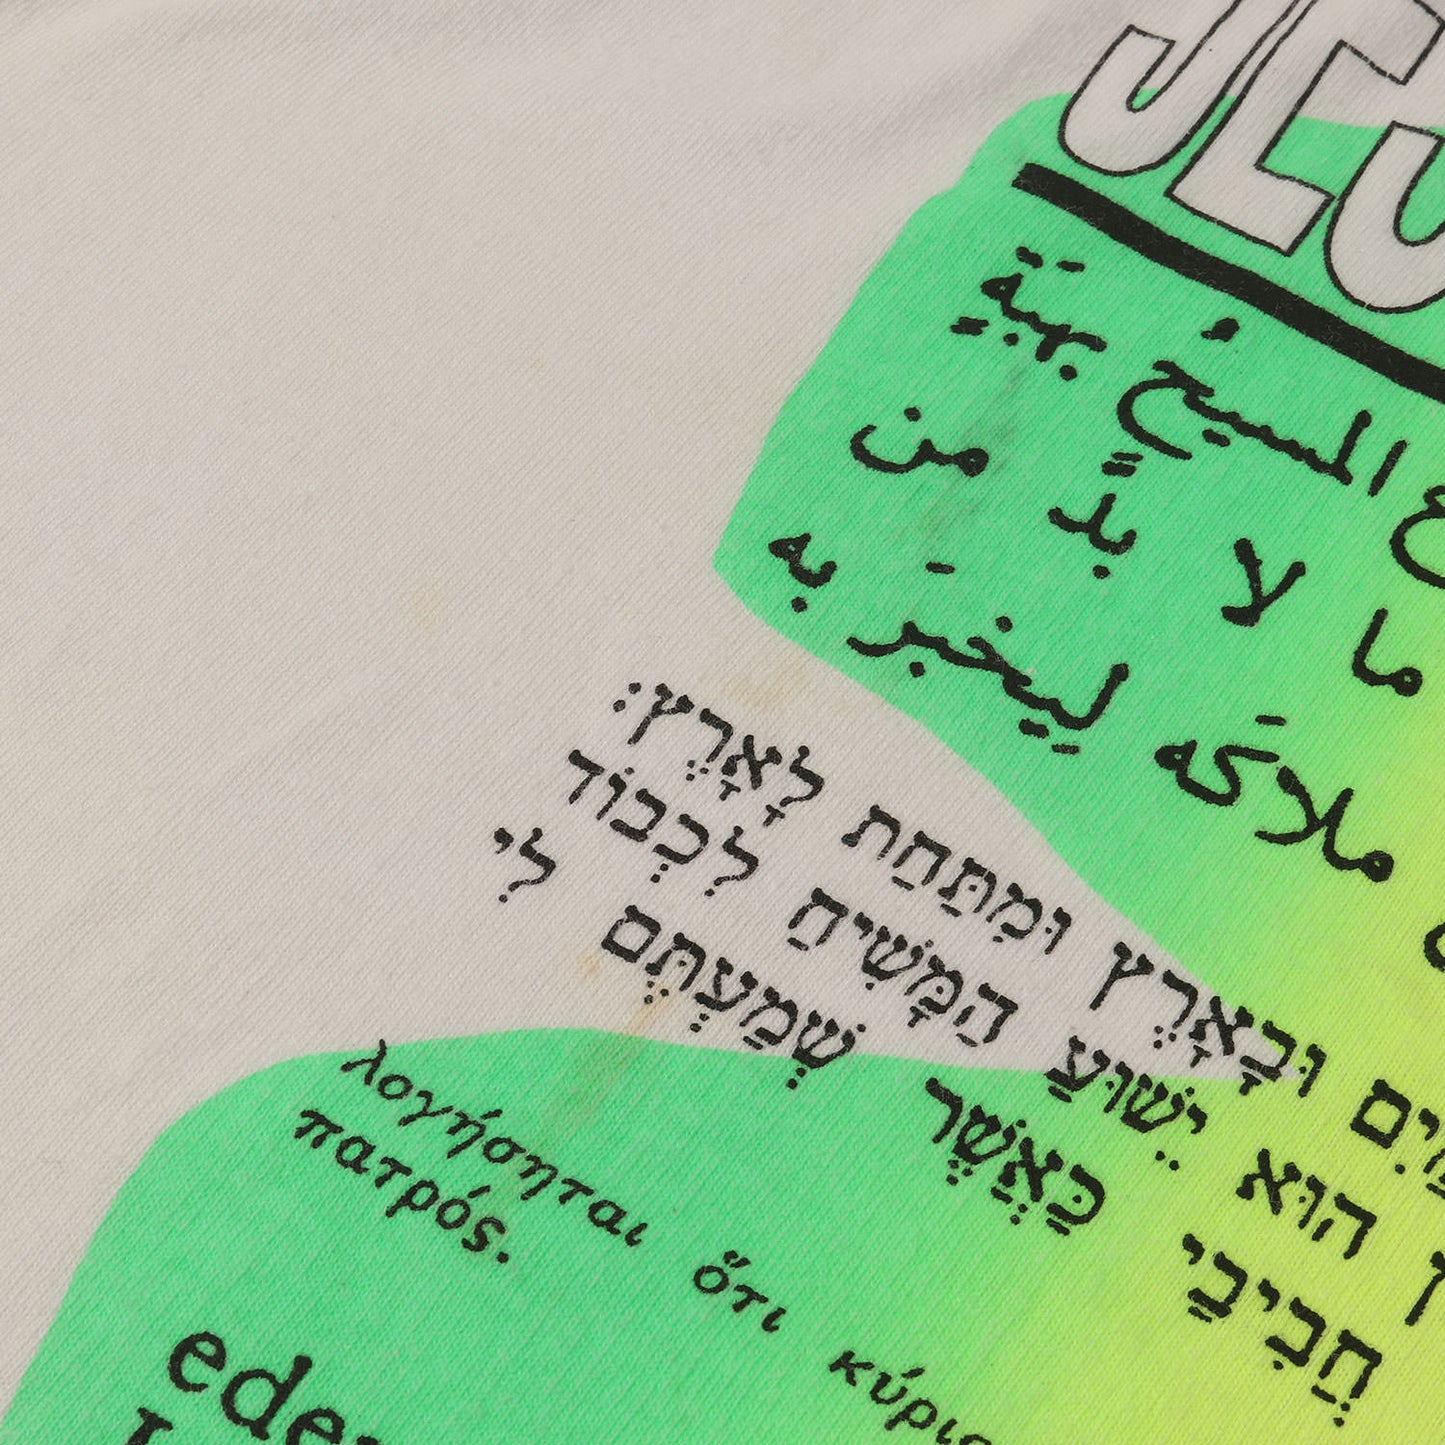 JES
المسيحُ بهبَةٍ
ما لا بدٍّ من
ملاكَه لِيخبَر به
וּבָאָרֶץ וּמִתַּחַת לָאָרֶץ׃
הוּא יֵשׁוּעַ הַמָּשִׁיחַ לִכְבוֹד
חֲבִיבַי כַּאֲשֶׁר שְׁמַעְתֶּם לִי
λογήσηται ὅτι κύριο
πατρός.
eder